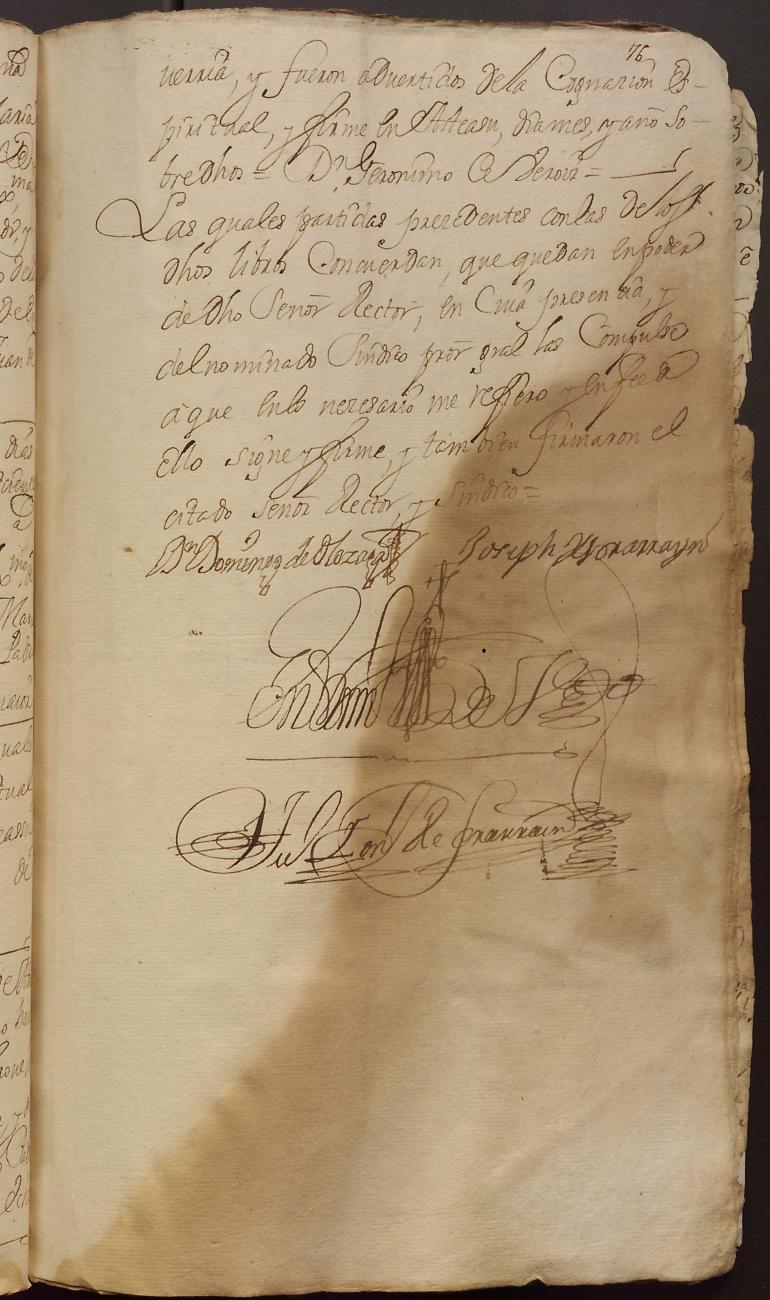 76
uerria, y fueron aduertidos de la Cognacion Es-
piritual, y firme en Atteasu, dia mes, y año So-
bredhos = Dn Geronimo
Las quales partidas prezedentes con las de los
dhos libros Concuerdan, que quedan en poder
de dho Señor Rector, en Cuia presencia, y
del nominado Sindico pror gral las Compulse
a que en lo nezesario me refiero y en fee de
ello signe y firme, y tambien firmaron el
citado Señor Rector, y Sindico =
Dn Domingo de Olozaga Joseph
En testim de Verdad
de Irarrain